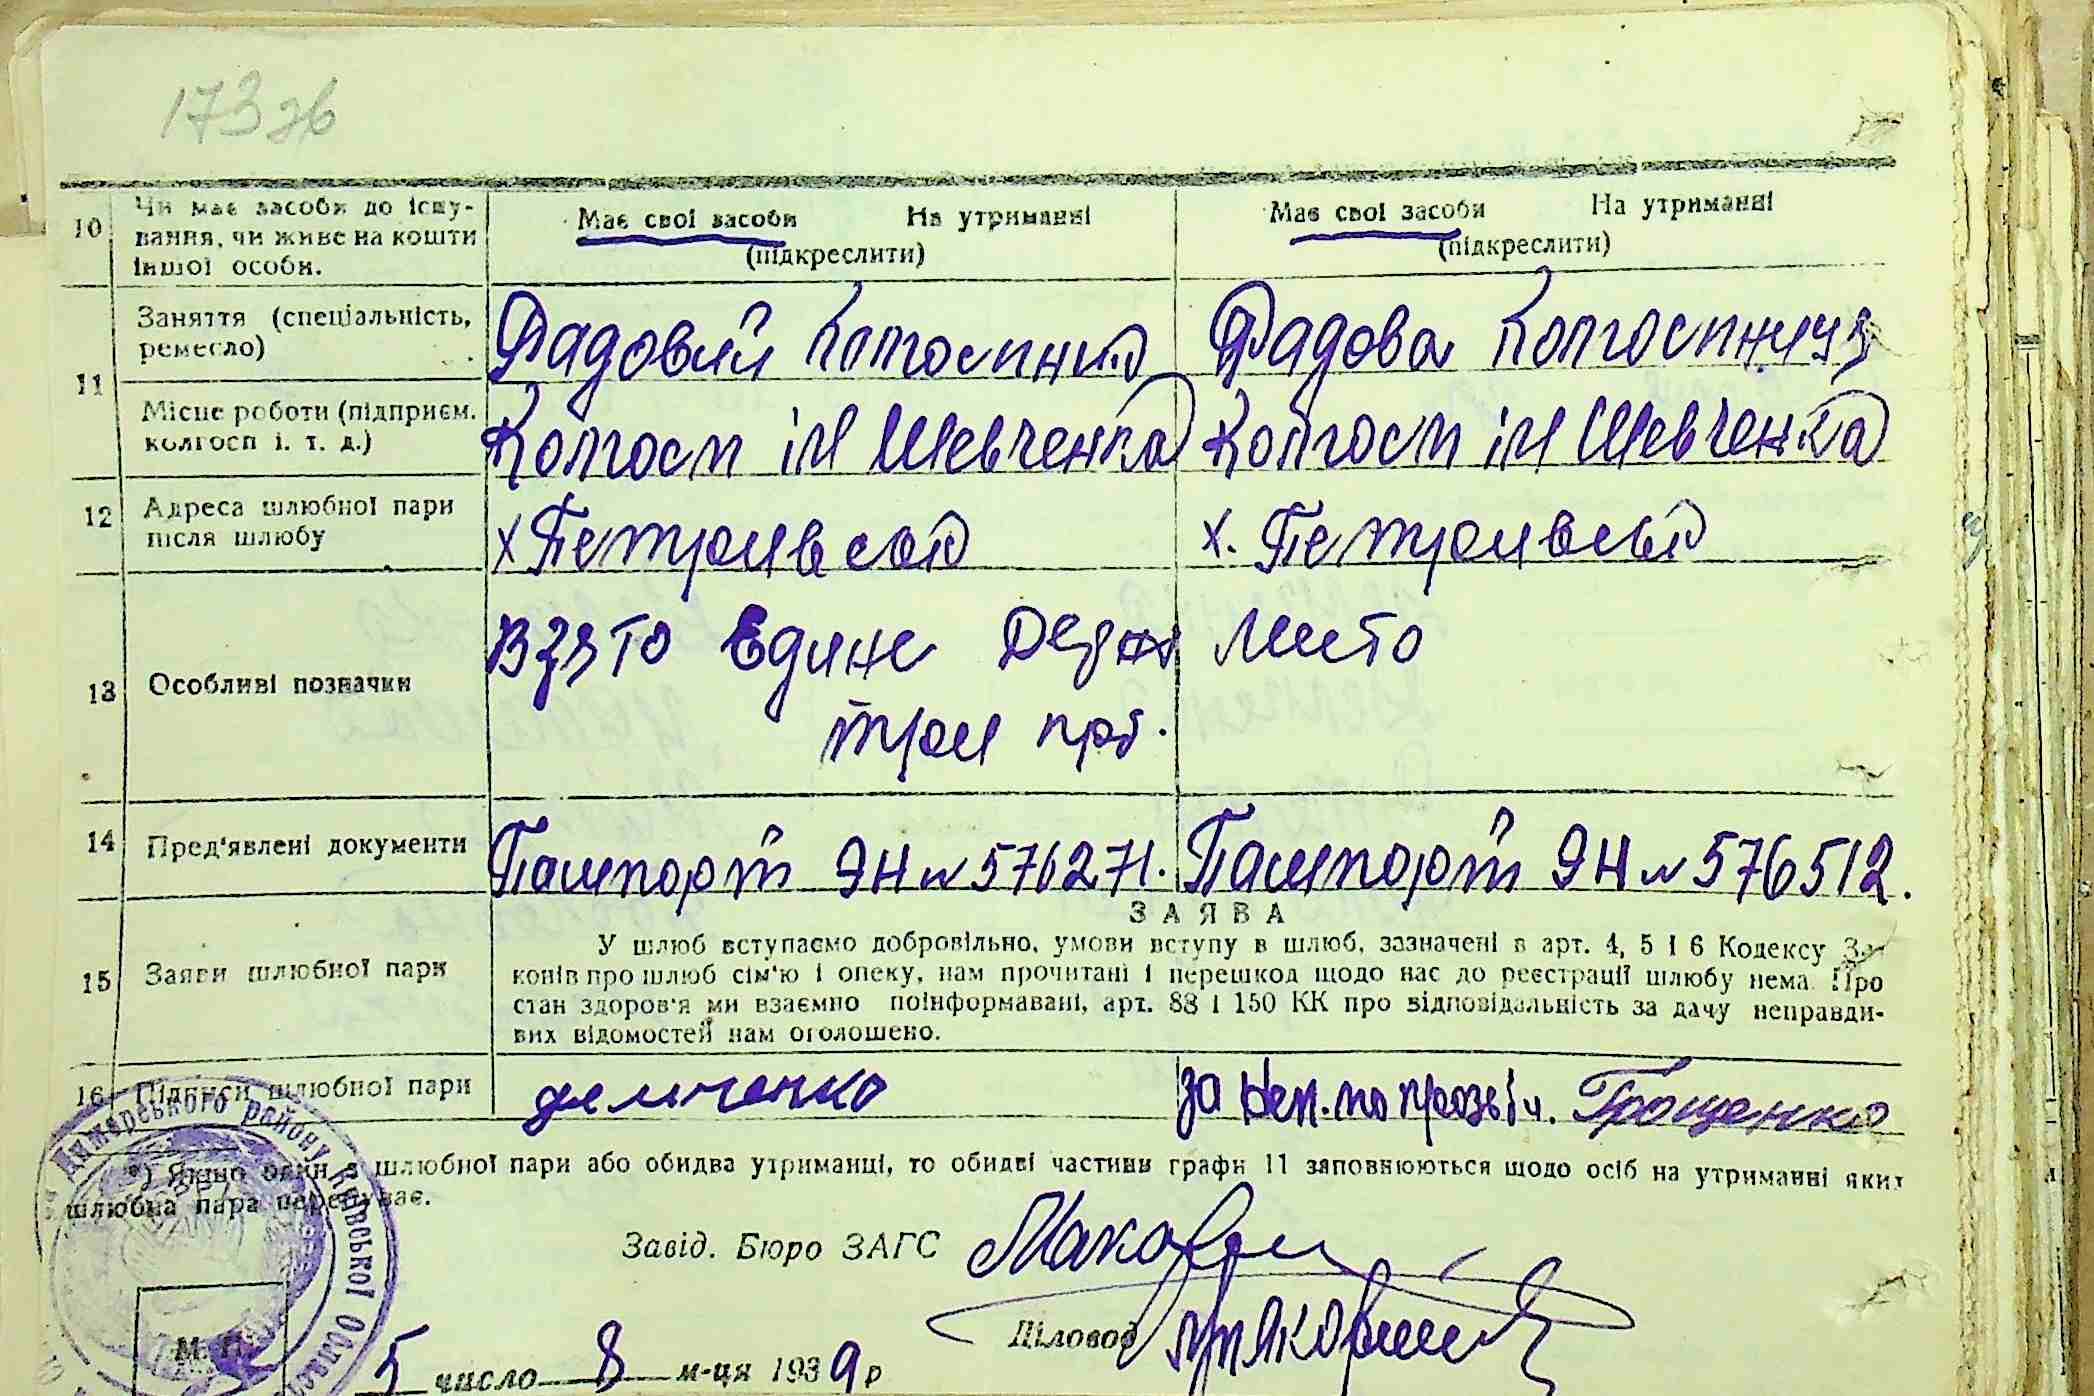 173 зв
10 Чи має засоби до існу-
вання, чи живе на кошти
іншої особи.
Має свої засоби На утриманні
(підкреслити)
Має свої засоби На утриманні
(підкреслити)
11 Заняття (спеціальність,
ремесло)
Рядовий Колгоспник
Рядова Колгоспниця
Місце роботи (підприєм.
колгосп і. т. д.)
Колгосп ім Шевченка
Колгосп ім Шевченка
12 Адреса шлюбної пари
після шлюбу
х Петрівský
х. Петрівський
13 Особливі позначки
Взято Едине Держ мито
три крб.
14 Пред'явлені документи
Пашпорт ЯН № 576271.
Пашпорт ЯН № 576512.
15 Заяви шлюбної пари
ЗАЯВА
У шлюб вступаємо добровільно, умови вступу в шлюб, зазначені в арт. 4, 5 і 6 Кодексу За-
конів про шлюб сім'ю і опеку, нам прочитані і перешкод щодо нас до реєстрації шлюбу нема. Про
стан здоров'я ми взаємно поінформавані, арт. 88 і 150 КК про відповідальність за дачу неправди-
вих відомостей нам оголошено.
16 Підписи шлюбної пари
демченко
за неп. по прозвіч. Грощенко
*) Якщо один з шлюбної пари або обидва утриманці, то обидві частини графи 11 заповнюються щодо осіб на утриманні яких
шлюбна пара перебуває.
Завід. Бюро ЗАГС
Діловод
М. П.
Димерського району Київської
5 число 8 м-ця 1939 р